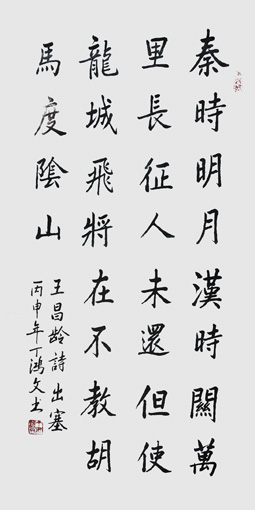 秦時明月漢時關萬
里長征人未還但使
龍城飛將在不教胡
馬度陰山
王昌齡詩出塞
丙申年丁鴻文書